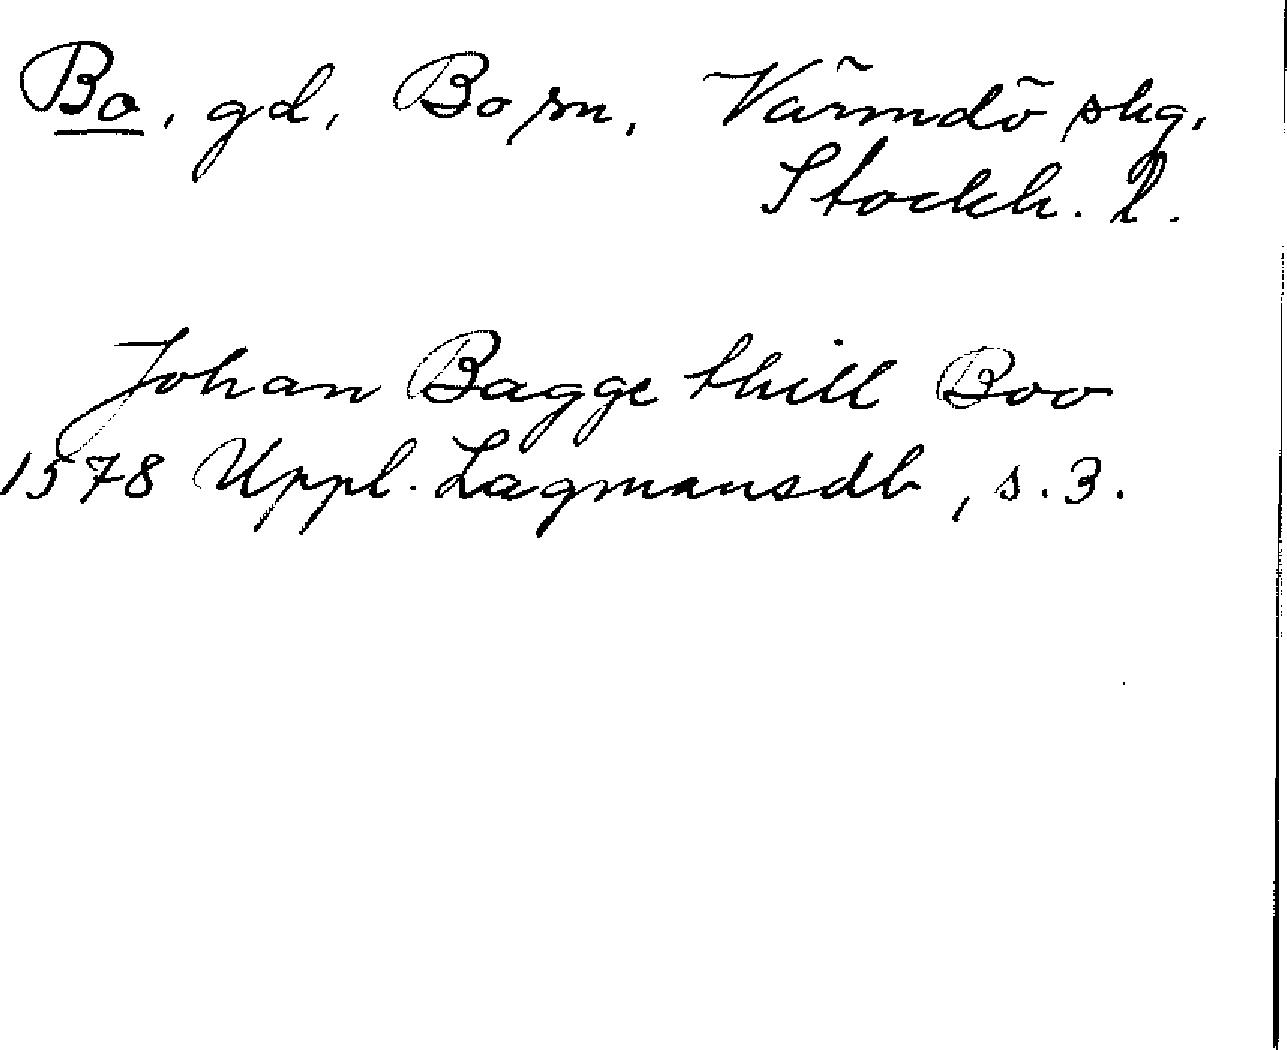 Bo, gd, Bo sn, Värmdö skg,
Stockh. l.
Johan Bagge thill Boo
1578 Uppl. Lagmansdb, s. 3.